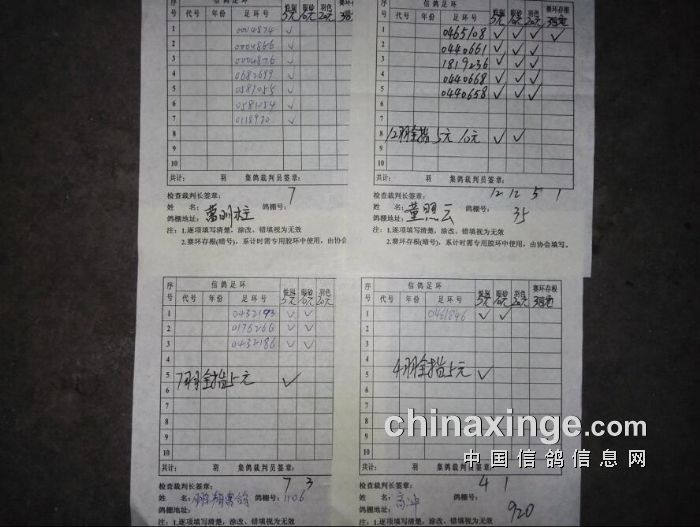 序号 信鸽足环
代号 年份 足环号 5元 10元 20元
1 0004874 ✓
2 ✓
3 ✓
4 ✓
5 ✓
6 ✓
7 ✓
8
9
10
共计: 羽 集鸽裁判员签章:
检查裁判长签章: 7
姓 名: 鸽棚号:
鸽棚地址:
注: 1.逐项填写清楚，涂改、错填视为无效
2.赛环存根(暗号)，系计时需专用胶环中使用，由协会
序号 信鸽足环 赛环存根
代号 年份 足环号 5元 10元 20元
1 0465108 ✓ ✓ ✓ ✓
2 0440661 ✓ ✓ ✓
3 1819236 ✓ ✓ ✓
4 0440668 ✓ ✓ ✓
5 0440658 ✓ ✓ ✓
6
7
8 12羽全指5元 10元 ✓ ✓
9
10
共计: 羽 集鸽裁判员签章:
检查裁判长签章: 12 12 5 1
姓 名: 董照云 鸽棚号:
鸽棚地址: 35
注: 1.逐项填写清楚，涂改、错填视为无效
2.赛环存根(暗号)，系计时需专用胶环中使用，由协会填写。
序号 信鸽足环
代号 年份 足环号 5元 10元 20元
1 ✓ ✓
2 0176266 ✓ ✓
3 0432186 ✓ ✓
4
5 7羽全指5元 ✓
6
7
8
9
10
共计: 羽 集鸽裁判员签章:
检查裁判长签章: 7 3
姓 名: 鸽棚号: 1106
鸽棚地址:
注: 1.逐项填写清楚，涂改、错填视为无效
序号 信鸽足环 赛环存根
代号 年份 足环号 5元 10元 20元
1 0461846 ✓ ✓
2
3
4
5 4羽全指5元 ✓
6
7
8
9
10
共计: 羽 集鸽裁判员签章:
检查裁判长签章: 4 1
姓 名: 鸽棚号:
鸽棚地址: 920
注: 1.逐项填写清楚，涂改、错填视为无效
chinaxinge.com
中国信鸽信息网